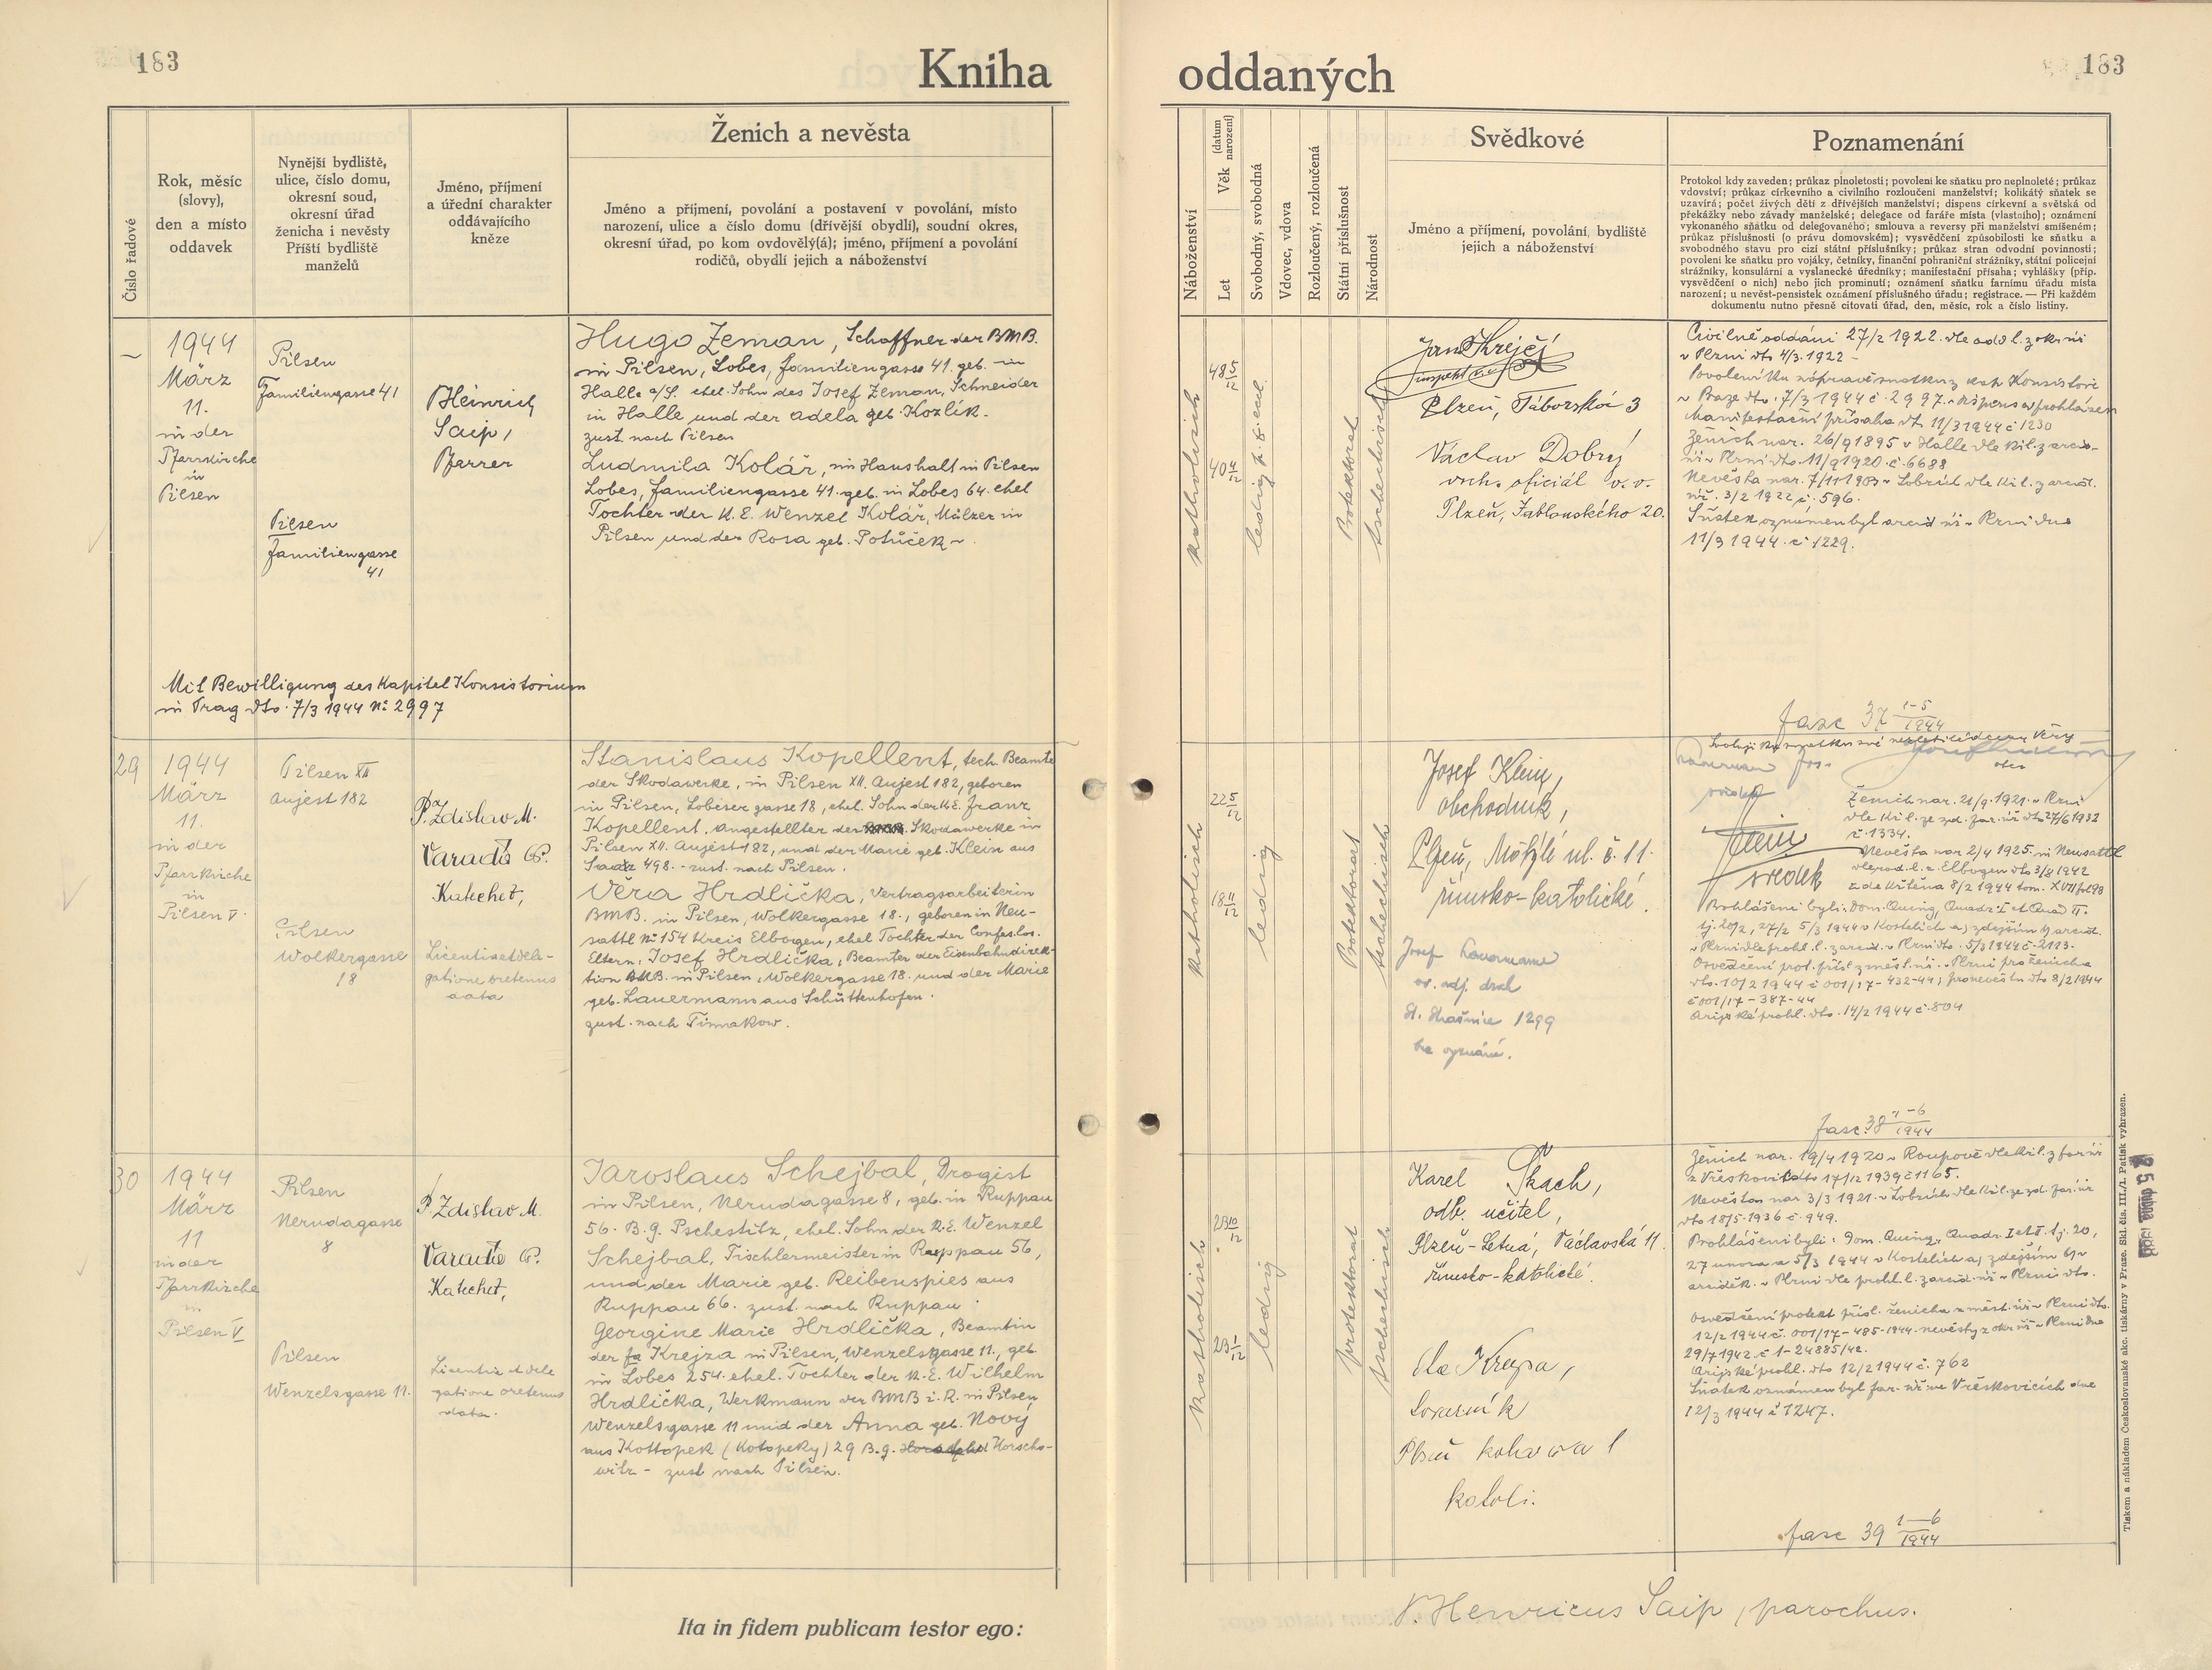 183
Kniha
oddaných
183
Číslo řadové
Rok, měsíc
(slovy),
den a místo
oddavek
Nynější bydliště,
ulice, číslo domu,
okresní soud,
okresní úřad
ženicha i nevěsty
Příští bydliště
manželů
Jméno, příjmení
a úřední charakter
oddávajícího
kněze
Ženich a nevěsta
Jméno a příjmení, povolání a postavení v povolání, místo
narození, ulice a číslo domu (dřívější obydlí), soudní okres,
okresní úřad, po kom ovdovělý(á); jméno, příjmení a povolání
rodičů, obydlí jejich a náboženství
Náboženství
Let
Věk (datum narození)
Svobodný, svobodná
Vdovec, vdova
Rozloučený, rozloučená
Státní příslušnost
Národnost
Svědkové
Jméno a příjmení, povolání, bydliště
jejich a náboženství
Poznamenání
Protokol kdy zaveden; průkaz plnoletosti; povolení ke sňatku pro neplnoleté; průkaz
vdovství; průkaz církevního a civilního rozloučení manželství; kolikátý sňatek se
uzavírá; počet živých dětí z dřívějších manželství; dispens církevní a světská od
překážky nebo závady manželské; delegace od faráře místa (vlastního); oznámení
vykonaného sňatku od delegovaného; smlouva a reversy při manželství smíšeném;
průkaz příslušnosti (o právu domovském); vysvědčení způsobilosti ke sňatku a
svobodného stavu pro cizí státní příslušníky; průkaz stran odvodní povinnosti;
povolení ke sňatku pro vojáky, četníky, finanční pohraniční strážníky, státní policejní
strážníky, konsulární a vyslanecké úředníky; manifestační přísaha; vyhlášky (příp.
vysvědčení o nich) nebo jich prominutí; oznámení sňatku farnímu úřadu místa
narození; u nevěst-pensistek oznámení příslušného úřadu; registrace. — Při každém
dokumentu nutno přesně citovati úřad, den, měsíc, rok a číslo listiny.
1944
März
11.
in der
Pfarrkirche
in
Pilsen
Pilsen
Familiengasse 41
Pilsen
Familiengasse
41
Heinrich
Saip,
Pfarrer
Hugo Zeman, Schaffner der BMB.
in Pilsen, Lobes, Familiengasse 41. geb. in
Halle a/S. ehel. Sohn des Josef Zeman, Schneider
in Halle und der Adela geb. Kozlík.
zust. nach Pilsen
Ludmila Kolář, im Haushalt in Pilsen
Lobes, Familiengasse 41. geb. in Lobes 64. ehel
Tochter der K. E. Wenzel Kolář, Mälzer in
Pilsen und der Rosa geb. Potůček
Mit Bewilligung des Kapitel Konsistorium
in Prag dto. 7/3 1944 No 2997
katholisch
48 5/12
40 4/12
ledig
Protektorat
tschechisch
Jan Krejčí
Plzeň, Táborská 3
Václav Dobrý
vrch. oficiál v. v.
Plzeň, Jablonského 20.
Civilně oddáni 27/2 1922. dle odd. l. z okr. úř.
v Plzni dto 4/3. 1922 -
v Praze dto. 7/3 1944 č. 2997.
Manifestační přísaha dto 11/3 1944 č 1230
Ženich nar. 26/9 1895 v Halle dle
v Plzni dto. 11/9 1920. č. 6688
Nevěsta nar. 7/11 1903 v Lobzích dle kř. l. z arcid.
úř. 3/2 1922 č. 596.
Sňatek oznámen byl arcid úř v Plzni dne
11/3 1944. č. 1229.
fasc 37 1-5/1944
29
1944
März
11.
in der
Pfarrkirche
in
Pilsen V.
Pilsen XII
Aujest 182
Pilsen
Wolkergasse
18
P. Zdislav M.
Varadě
Katechet,
Licentia et dele-
gatione oretenus
data
Stanislaus Kopellent, tech Beamte
der Skodawerke, in Pilsen XII. Aujest 182, geboren
in Pilsen, Lobeser gasse 18, ehel. Sohn der K E. Franz
Kopellent, Angestellter der Skodawerke in
Pilsen XII. Aujest 182, und der Marie geb. Klein aus
Saaz 498. - zust. nach Pilsen.
Věra Hrdlička, Vertragsarbeiterin
BMB. in Pilsen, Wolkergasse 18., geboren in Neu-
sattl No 154 Kreis Elbogen, ehel Tochter der Confes. los.
Eltern, Josef Hrdlička, Beamter der Eisenbahndirek-
tion BMB. in Pilsen, Wolkergasse 18. und der Marie
geb. Lauermann aus Schüttenhofen.
zust. nach Timakow.
katholisch
22 5/12
18 11/12
ledig
Protektorat
tschechisch
Josef Klein,
obchodník,
Plzeň, Motýlí ul. č. 11.
římsko-katolické.
Josef Lauermann
bez vyznání.
Klein
svědek
Ženich nar. 21/9. 1921. v Plzni
dle kř. l. ze zd. far. úř dto 27/6 1932
č. 1334.
Nevěsta nar 2/4 1925. in Neusattl
dle rod. l. z Elbogen dto 3/8 1942
Prohlášeni byli: Dom. Quinq, Quadr. I et Quad II.
tj. 20/2, 27/2 5/3 1944 v Kostelích a) zdejším b) arcid.
v Plzni dle prohl. l. z arcid. v Plzni dto. 5/3 1944 č. 2113.
Osvědčení prot. přísl z měst. úř. v Plzni pro ženicha
dto. 10/2 1944 č 001/17-432-44; pro nevěstu dto 8/2 1944
č 001/17-387-44
Arijské prohl. dto. 14/2 1944 č. 804
fasc. 38 1-6/1944
30
1944
März
11
in der
Pfarrkirche
in
Pilsen V
Pilsen
Nerudagasse
8
Pilsen
Wenzelsgasse 11.
P Zdislav M.
Varadě
Katechet,
Licentia et dele
gatione oretenus
data.
Jaroslaus Schejbal, Drogist
in Pilsen, Nerudagasse 8, geb. in Ruppau
56. B. g. Pschestitz, ehel. Sohn der R. E. Wenzel
Schejbal, Tischlermeister in Ruppau 56,
und der Marie geb. Reibenspies aus
Ruppau 66. zust. nach Ruppau.
Georgine Marie Hrdlička, Beamtin
der fa Krejza in Pilsen, Wenzelsgasse 11., geb
in Lobes 254. ehel. Tochter der R. E. Wilhelm
Hrdlička, Werkmann der BMB i. R. in Pilsen,
Wenzelsgasse 11 und der Anna geb. Nový
aus Kottopek (Kotopeky) 29 B. g. Horscho-
witz - zust nach Pilsen.
katholisch
23 10/12
23 1/12
ledig
Protektorat
tschechisch
Karel Tkach,
odb. učitel,
Plzeň-Letná, Václavská 11.
římsko-katolické.
Krepa,
Plzeň
Ženich nar. 19/4 1920 v Roupově dle kř. l. z far úř
z Vřeskovic dto 17/12 1939 č 1165.
Nevěsta nar 3/3 1921. v Lobzích dle kř. l. ze zd. far. úř
dto 18/5. 1936 č. 949.
Prohlášeni byli: Dom. Quinq. Quadr. I et II. tj. 20,
27 února a 5/3 1944 v Kostelích a) zdejším b) v
arciděk. v Plzni dle prohl. l. z arcid. úř v Plzni dto.
Osvědčení protekt přísl. ženicha z měst. úř v Plzni dto.
12/2 1944 č. 001/17-485-1944. nevěsty z okr úř v Plzni dne
29/7 1942. č 1-24885/42.
Arijské prohl. dto 12/2 1944 č. 762
Sňatek oznámen byl far. úř ve Vřeskovicích dne
12/3 1944 č 1247.
fasc 39 1-6/1944
Ita in fidem publicam testor ego:
P. Henricus Saip, parochus.
Tiskem a nákladem Československé akc. tiskárny v Praze. Skl. čís. III./2. Patisk vyhrazen.